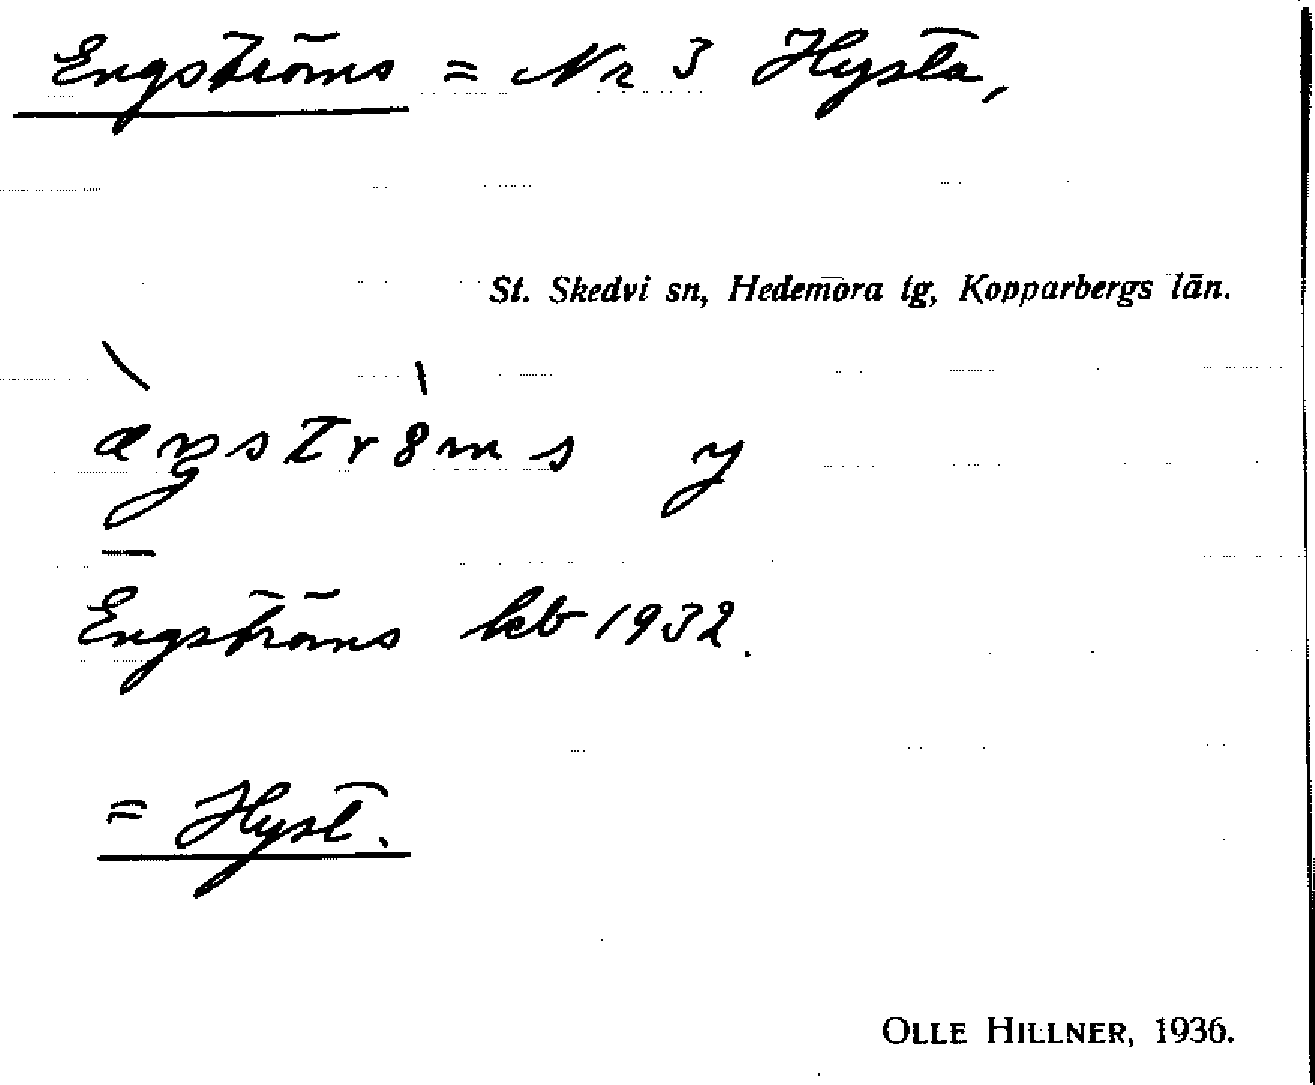 Engströms = Nr 3 Hysta,
St. Skedvi sn, Hedemora tg, Kopparbergs län.
æŋstr8ms y
Engströms kb 1932.
= Hyst.
OLLE HILLNER, 1936.